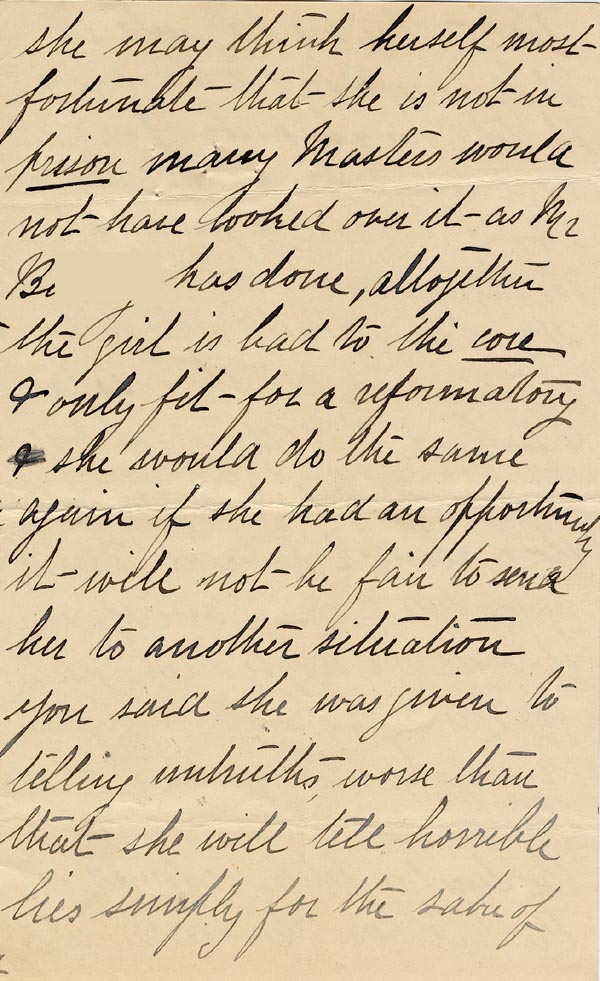 she may think herself most
fortunate that she is not in
prison many Masters would
not have looked over it as Mr
Be has done, altogether
the girl is bad to the core
& only fit for a reformatory
& she would do the same
again if she had an opportunity
it will not be fair to send
her to another situation
you said she was given to
telling untruths, worse than
that she will tell horrible
lies simply for the sake of